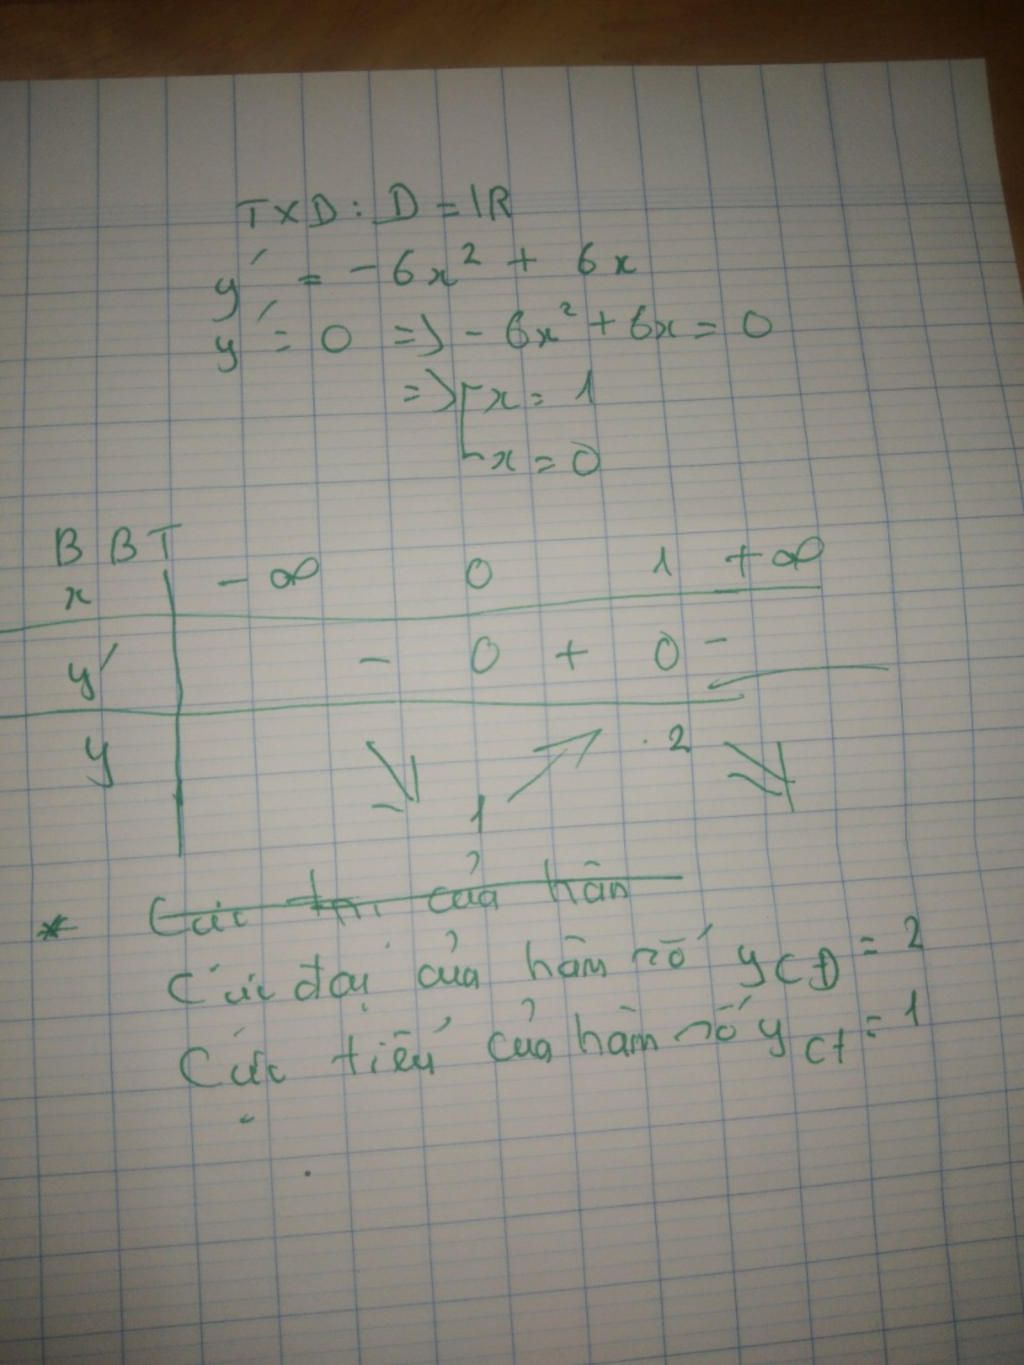 TXD: D = IR
y' = -6x² + 6x
y' = 0 => -6x² + 6x = 0
=> [ x = 1
x = 0
BBT
x -∞ 0 1 +∞
y' - 0 + 0 -
y ↘ 1 ↗ 2 ↘
* Cực trị của hàn
Cực đại của hàm số yCĐ = 2
Cực tiểu của hàm số yCt = 1